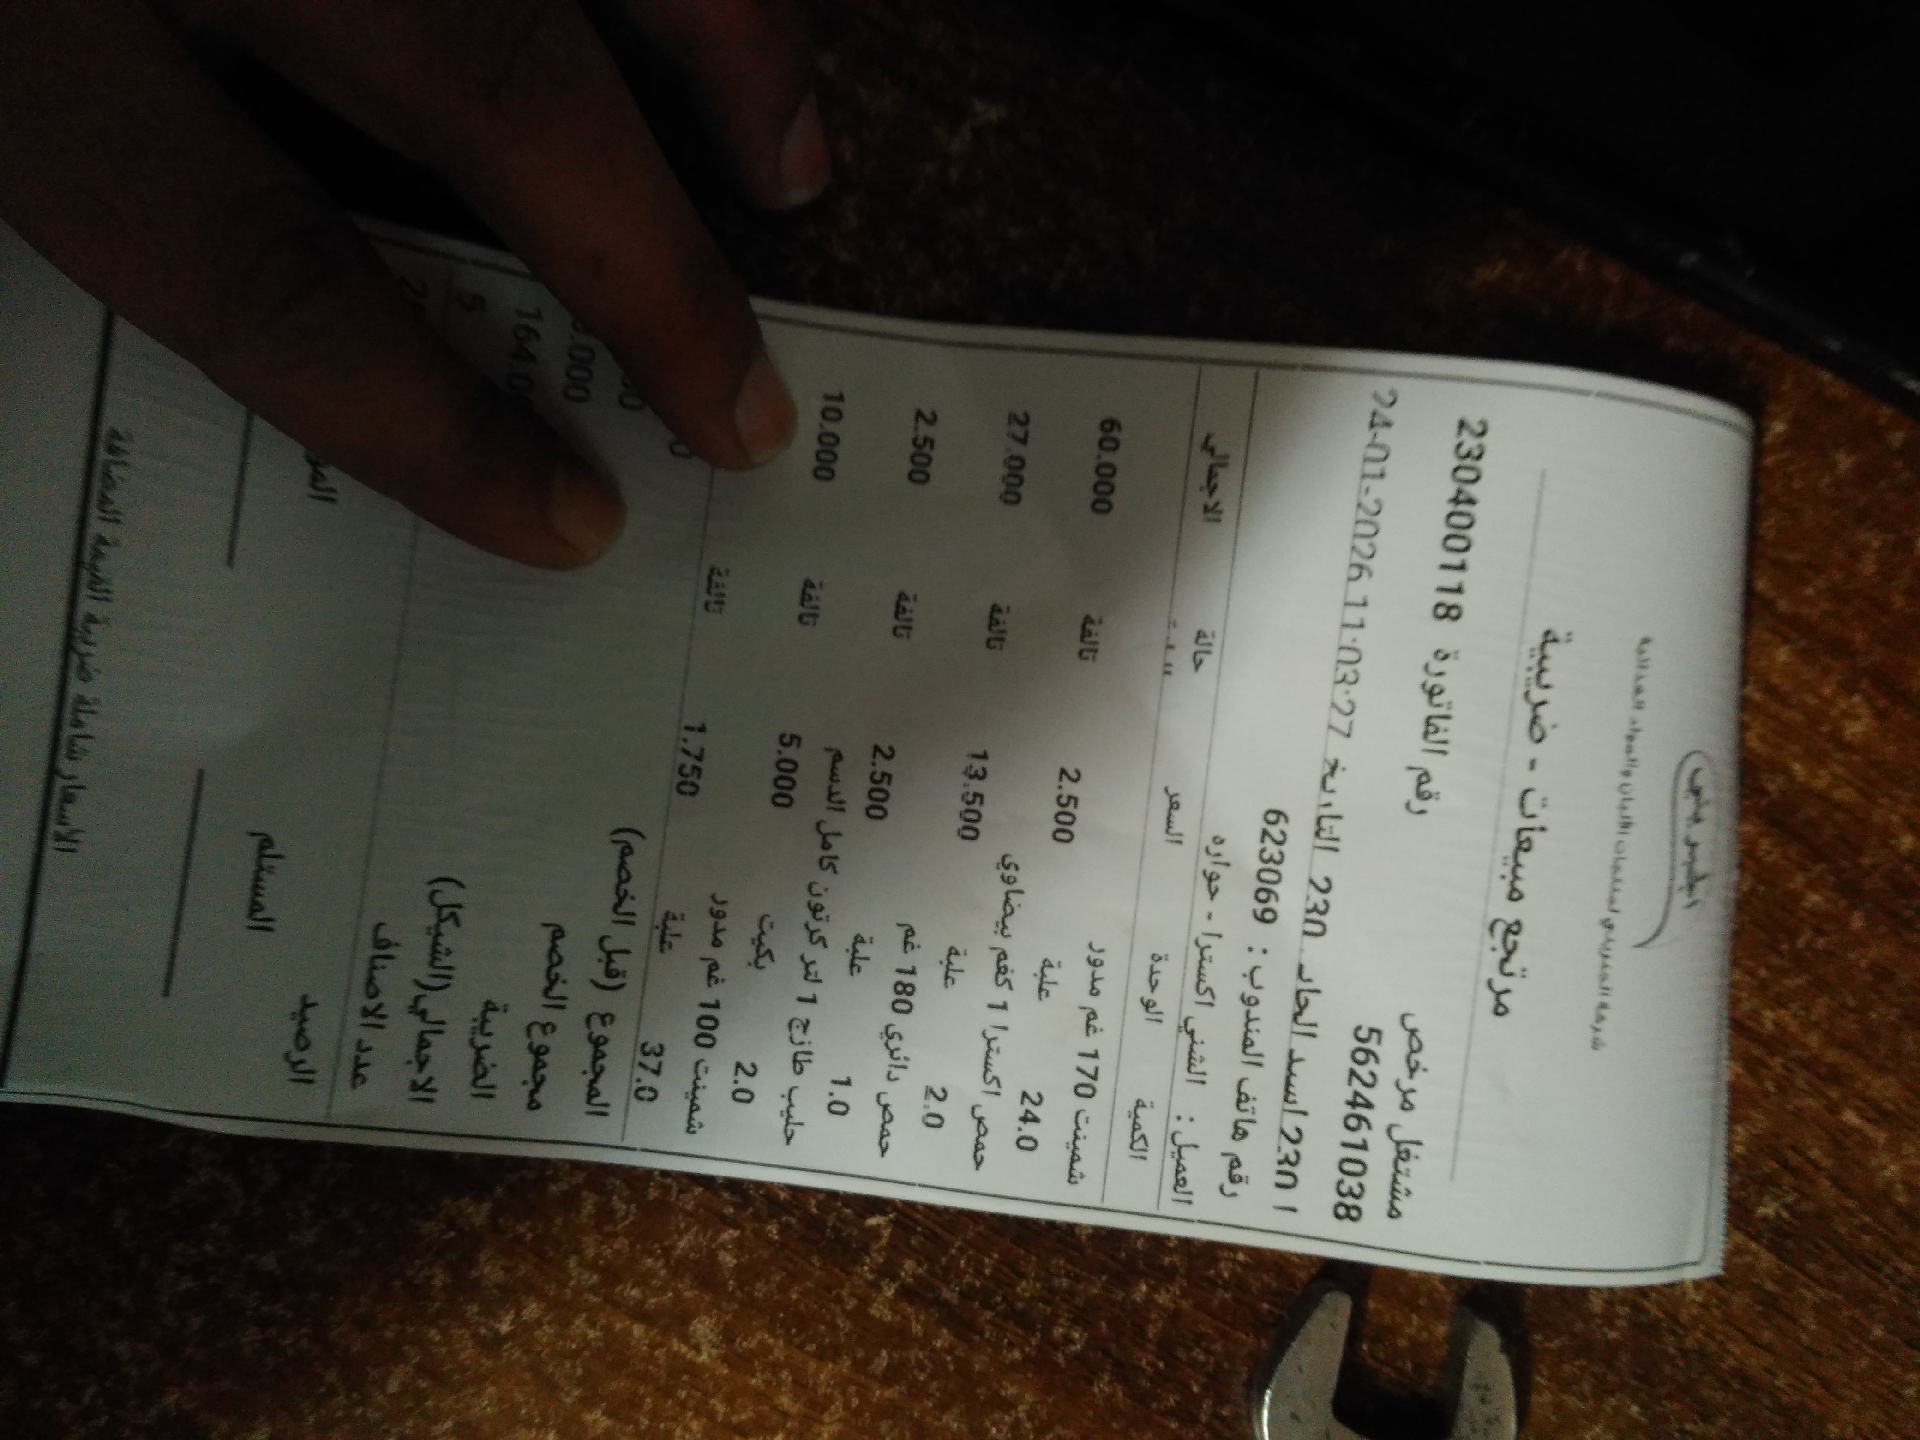 الجبريني
مرتجع مبيعات - ضريبية
مشتغل مرخص
562461038
رقم الفاتورة 230400118
التاريخ 24-01-2026 11:03:27
رقم هاتف المندوب: 623069
العميل: الشني اكسترا - حواره
الكمية الوحدة السعر حالة الاجمالي
شمينت 170 غم مدور
24.0 علبة 2.500 تالفة 60.000
حمص اكسترا 1 كغم بيضاوي
2.0 علبة 13.500 تالفة 27.000
حمص دائري 180 غم
1.0 علبة 2.500 تالفة 2.500
حليب طازج 1 لتر كرتون كامل الدسم
2.0 بكيت 5.000 تالفة 10.000
شمينت 100 غم مدور
37.0 علبة 1.750 تالفة
المجموع (قبل الخصم)
مجموع الخصم
الضريبة
الاجمالي(الشيكل) 164.0
عدد الاصناف 5
الرصيد
المستلم
الاسعار شاملة ضريبة القيمة المضافة